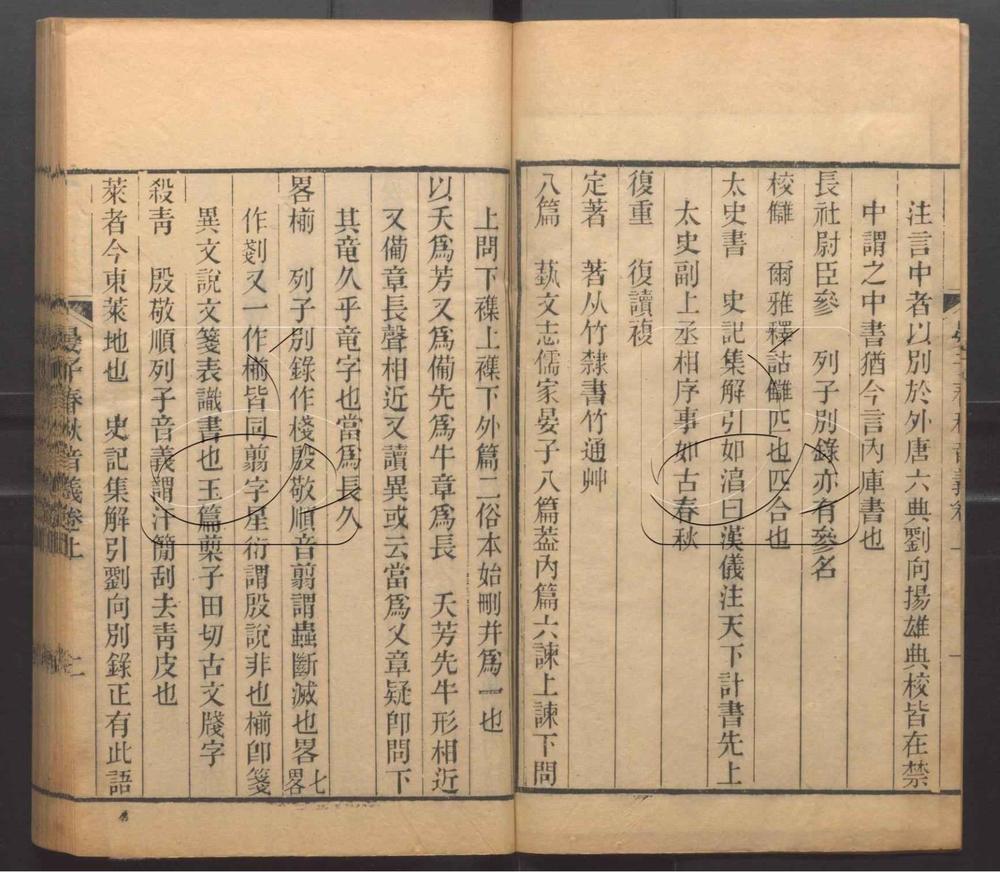 注言中者以別於外唐六典劉向揚雄典校皆在禁
中謂之中書猶今言內庫書也
長社尉臣參　列子別錄亦有參名
校讎　爾雅釋詁讎匹也匹合也
太史書　史記集解引如淳曰漢儀注天下計書先上
太史副上丞相序事如古春秋
復重　復讀複
定著　著从竹隸書竹通艸
八篇　蓺文志儒家晏子八篇葢內篇六諫上諫下問
上問下襍上襍下外篇二俗本始刪并爲一也
以夭爲芳又爲備先爲牛章爲長　夭芳先牛形相近
又備章長聲相近又讀異或云當爲又章疑卽問下
其竜久乎竜字也當爲長久
畧椾　列子別錄作棧殷敬順音翦謂蟲斷滅也畧七畧
作剗又一作椾皆同翦字星衍謂殷說非也椾卽箋
異文說文箋表識書也玉篇葉子田切古文牋字
殺靑　殷敬順列子音義謂汗簡刮去靑皮也
萊者今東萊地也　史記集解引劉向別錄正有此語
晏子春秋音義卷上
二